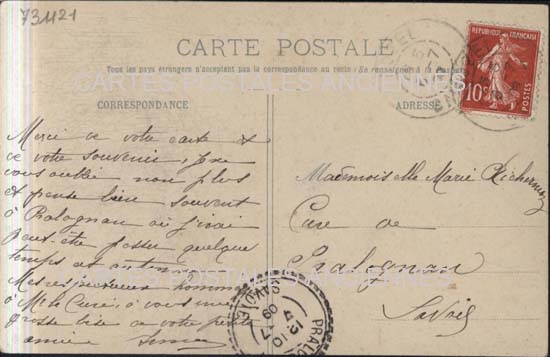 731121
CARTE POSTALE
Tous les pays étrangers n'acceptent pas la correspondance au recto (Se renseigner à la
CARTES POSTALES ANCIENNES
CORRESPONDANCE
ADRESSE
REPUBLIQUE FRANÇAISE
10c
POSTES
Merci de votre carte et
de votre souvenir, je ne
vous oublie non plus
et pense bien souvent
à Pralognan où j'irai
peut-être passer quelque
temps cet automne
Mes respectueux hommages
à Mr le Curé, à vous une
grosse bise de votre petite
amie
Mademoiselle Marie
Cure de
Pralognan
Savoie
CARTES POSTALES ANCIENNES
PRALOGNAN
SAVOIE
09